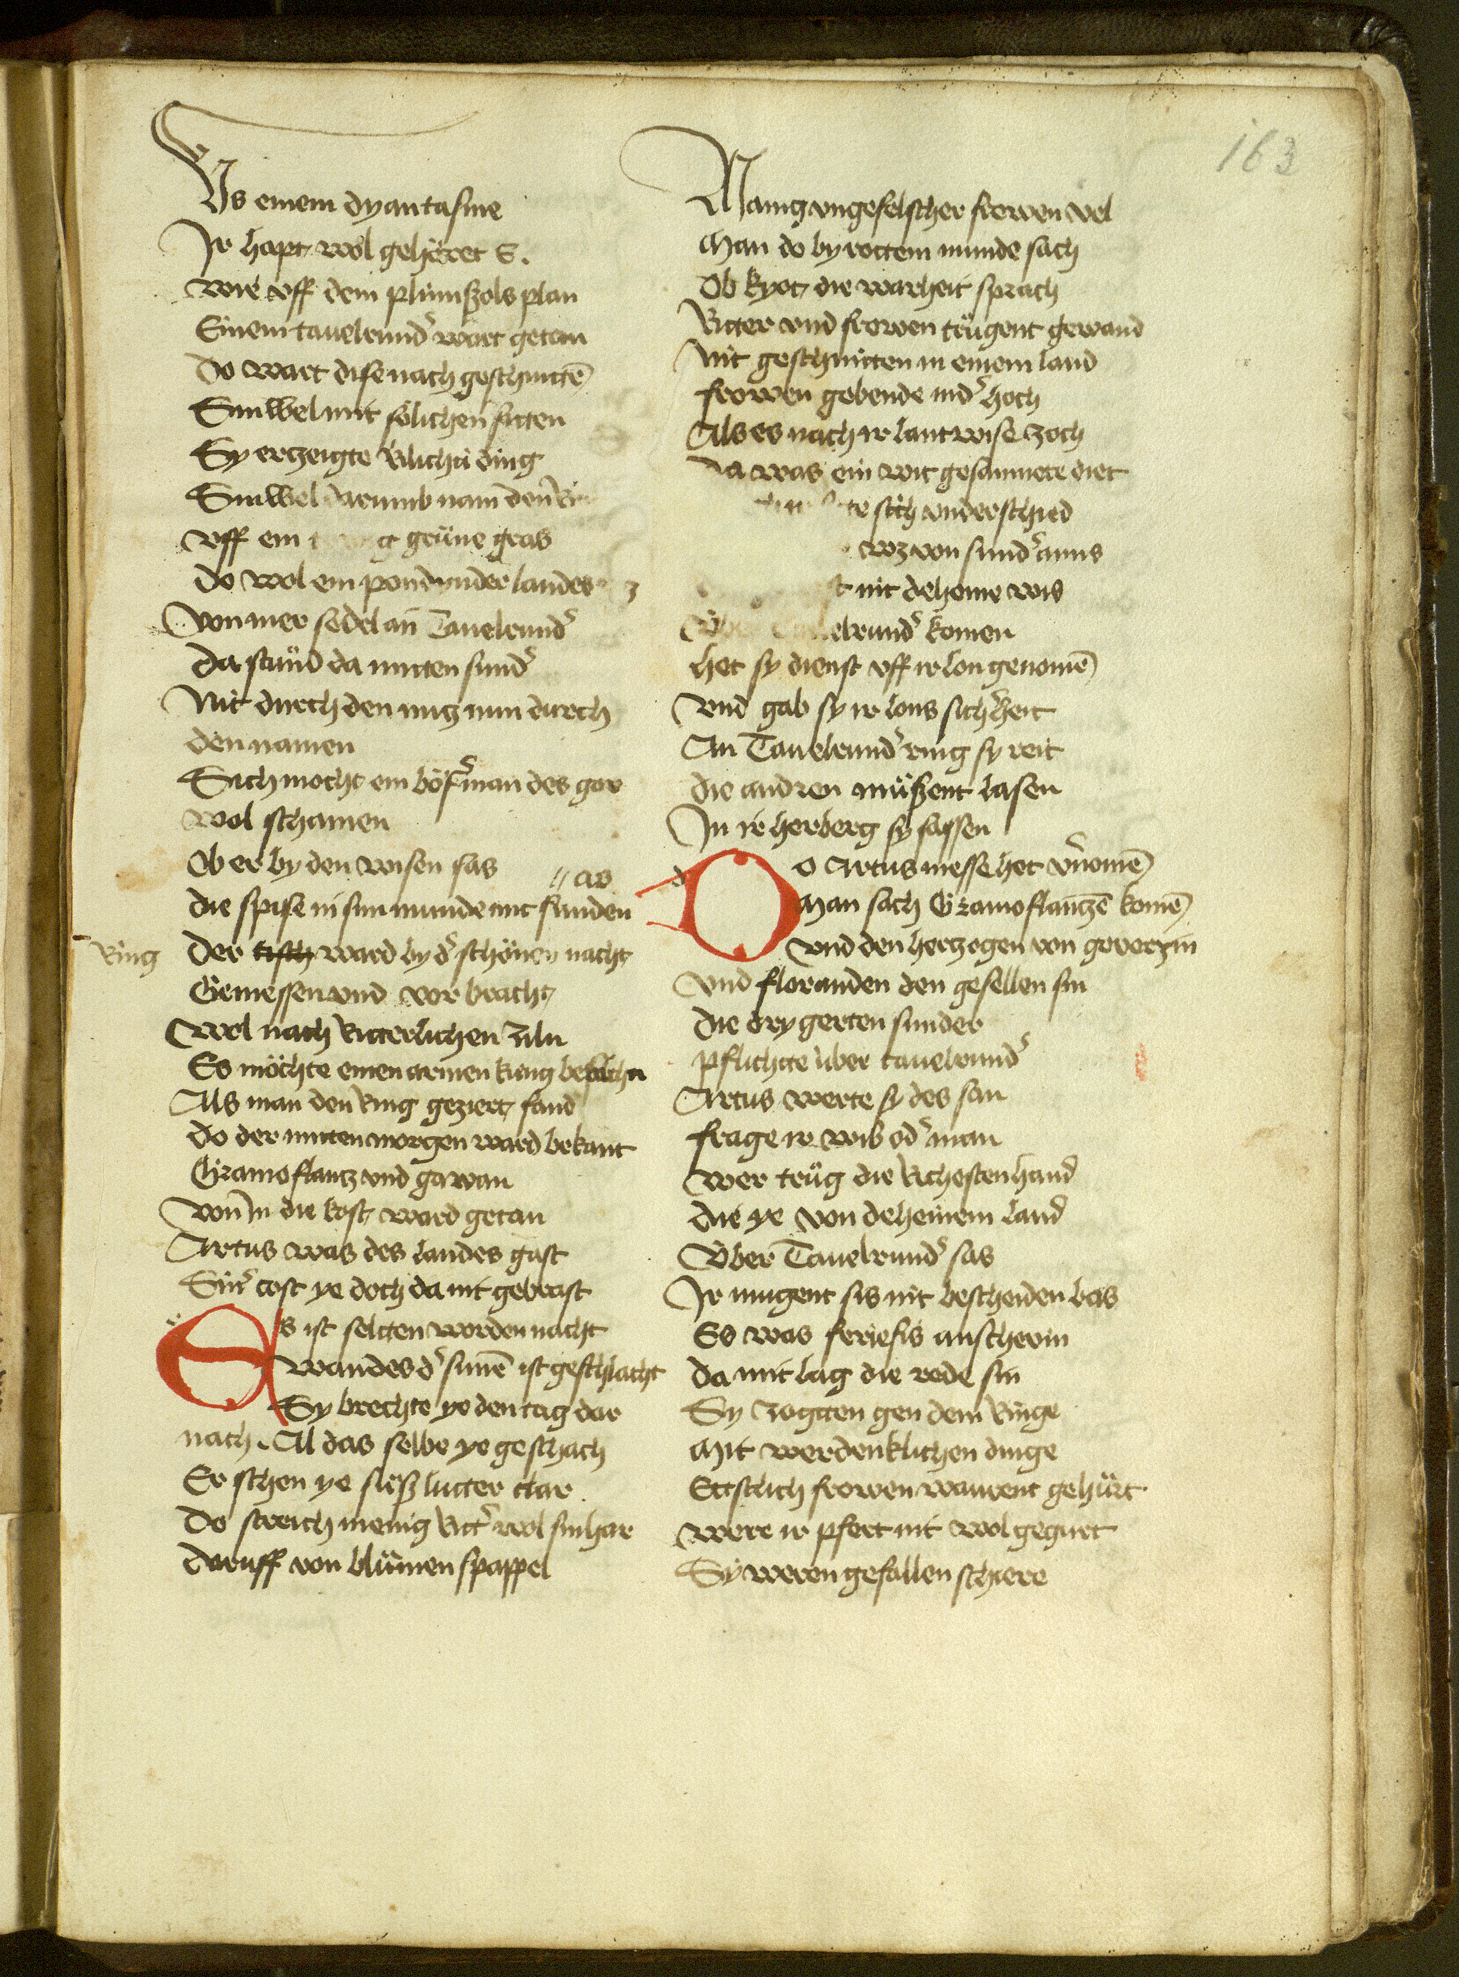 163
Vs einem dyantasme
Jr hapt wol gehöret S.
wie vff dem plimiszols plan
Einem tauelrund' wart getan
do wart dise nach geschnittē
Sinwel mit sölichen sitten
Sy erzeigte Rilichü ding
Sinwel darumb nam den
vff ein grüne gras
do wol ein pondz under landes
Von iner sedel an Tauelrund'
da stůnd da mitten sund'
Nit durch den nutz nun durch
den namen
Sich mocht ein böser man des gar
wol schamen
Ob er by den wisen sas
// as
die spise in sim munde mit sünden
Ring der tisch ward by d' schönen nacht
Gemessen vnd vor bracht
Wol nach Ritterlichen ziln
Es möchte einen armen kung
Als man den Ring geziert fand
do der mitten morgen ward bekant
Gramoflantz vnd gawan
von in die kost ward getan
Artus was des landes gast
Sin' cost ye doch da nit gebrast
Es ist seltten worden nacht
wandes d' sunnē ist geschlacht
Sy brechte ye den tag dar
nach. Al das selbe ye geschach
Er schen ye siesz lutter clar.
do streich menig Ritt' wol sin har
daruff von blůmen schappel
Manig vngefelscher frowen vel
Man do by rottem munde sach
Ob kyot die warheit sprach
Ritter vnd frowen trůgent gewand
Nit geschnitten in einem land
frowen gebende nid' hoch
Als es nach ir lantwise zoch
da was ein wit gesamnete diet
sich vnderschied
wz von sund' amis
nit deheine wis
Über Tauelrund' komen
het sy dienst vff ir lon genomē
vnd gab sy ir lons sich'heit
An Tauelrund' ring sy reit
die andren můszent lasen
Jn ir herberg sy sassen
Do Artus messe het v'nomē
Man sach Gramoflantzē komē
vnd den hertzogen von gowerzin
vnd floranden den gesellen sin
die dry gerten sunder
pflichtte über tauelrund'
Artus werte sy des san
frage ir wib od' man
wer trůg die Richesten hand
die ye von deheinem land
Über Tauelrund' sas
Jr mugent sis nit bescheiden bas
Es was feriefis anschevin
da mit lag die rede sin
Sy zogtten gen dem Ringe
Mit werdenklichen dinge
Ettslich frowen warent gehůrt
were ir pfert nit wol gegurt
Sy weren gefallen schiere